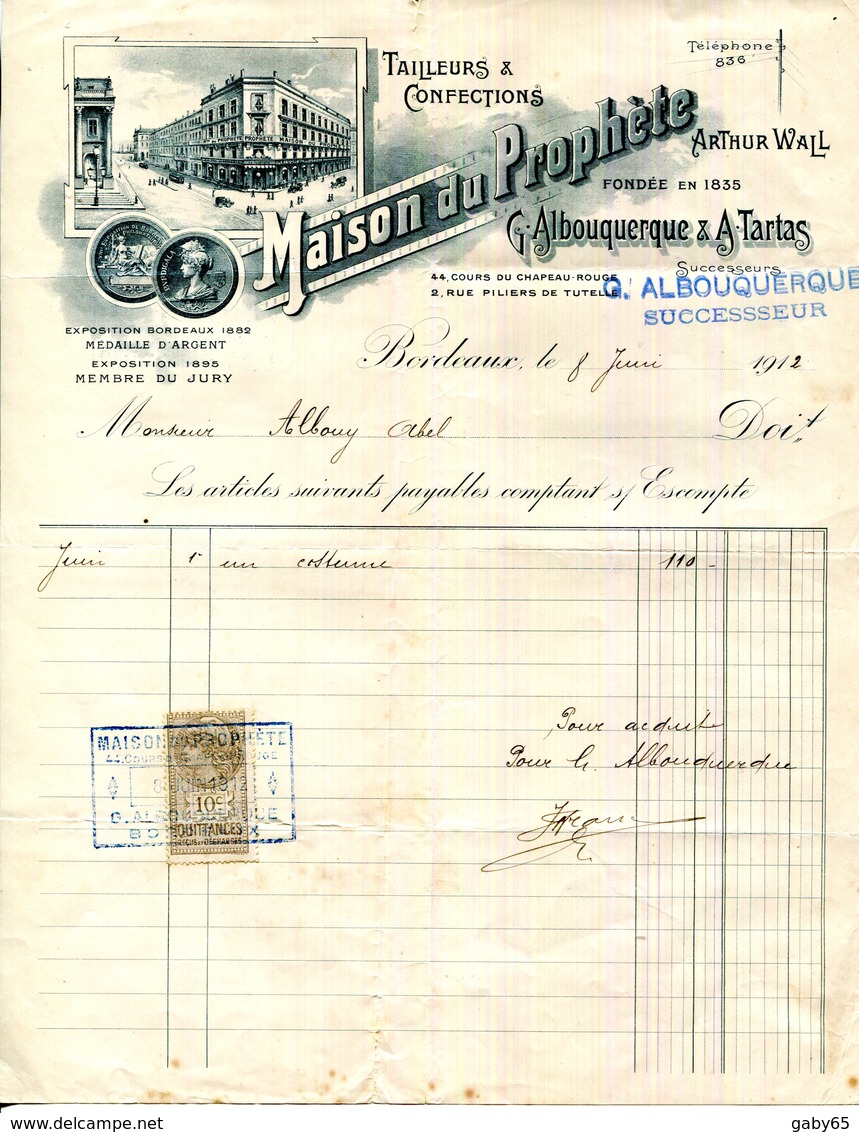 Téléphone
836
TAILLEURS &
CONFECTIONS
MAISON DU PROPHÈTE
Maison du Prophète
ARTHUR WALL
FONDÉE EN 1835
G. Albouquerque & A. Tartas
Successeurs
44, COURS DU CHAPEAU-ROUGE
2, RUE PILIERS DE TUTELLE
G. ALBOUQUERQUE
SUCCESSSEUR
BURDIGALA
EXPOSITION BORDEAUX 1882
MÉDAILLE D'ARGENT
EXPOSITION 1895
MEMBRE DU JURY
Bordeaux, le 8 Juin 1912
Monsieur Albouy Abel Doit
Les articles suivants payables comptant s/ Escompte
Juin 1 un costume 110 -
Pour acquit
Pour G. Albouquerque
MAISON DU PROPHÈTE
44, COURS ROUGE
8 JUIN 1912
10c
G. ALBOUQUERQUE
BORDEAUX
QUITTANCES
REÇUS ET DÉCHARGES
gaby65